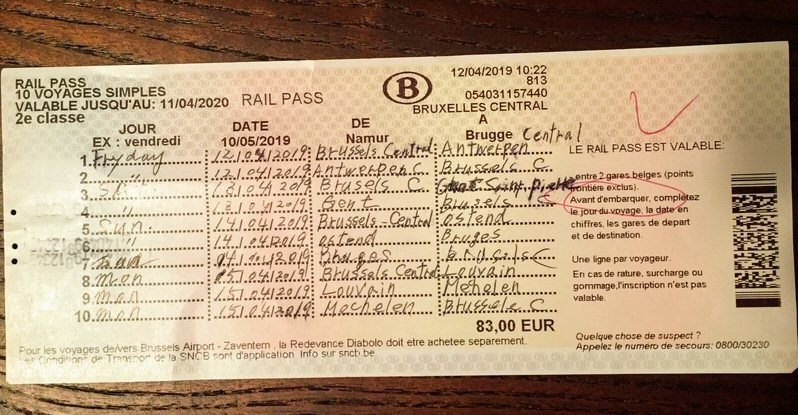 RAIL PASS
10 VOYAGES SIMPLES
VALABLE JUSQU'AU: 11/04/2020 RAIL PASS
2e classe
B
12/04/2019 10:22
813
054031157440
BRUXELLES CENTRAL
JOUR DATE DE A
EX : vendredi 10/05/2019 Namur Brugge
1. Fryday 12/04/2019 Brussels Central Antwerpen Central
2. " 12/04/2019 Antwerpen C Brussels C
3. 13/04/2019 Brusels C Saint pierre
4. " 13/04/2019 Gent Brussels C
5. Sun. 14/04/2019 Brussels-Central Ostend
6. " 14/04/2019 Ostend Bruges
7. Bruges
8. mon 15/04/2019 Brussels Central Louvain
9. mon 15/04/2019 Louvain Mehelen
10. mon 15/04/2019 Mechelen Brussele C
83,00 EUR
LE RAIL PASS EST VALABLE:
entre 2 gares belges (points
frontière exclus).
Avant d'embarquer, complétez
le jour du voyage, la date en
chiffres, les gares de départ
et de destination.
Une ligne par voyageur.
En cas de rature, surcharge ou
gommage,l'inscription n'est pas
valable.
Quelque chose de suspect ?
Appelez le numéro de secours: 0800/30230
Pour les voyages de/vers Brussels Airport - Zaventem , la Redevance Diabolo doit etre achetee separement.
Les Conditions de Transport de la SNCB sont d'application. Info sur sncb.be